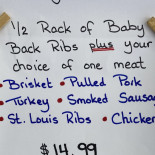 1/2 Rack of Baby
Back Ribs plus your
choice of one meat
• Brisket • Pulled Pork
• Turkey • Smoked Sausag
• St. Louis Ribs • Chicken
$14.99